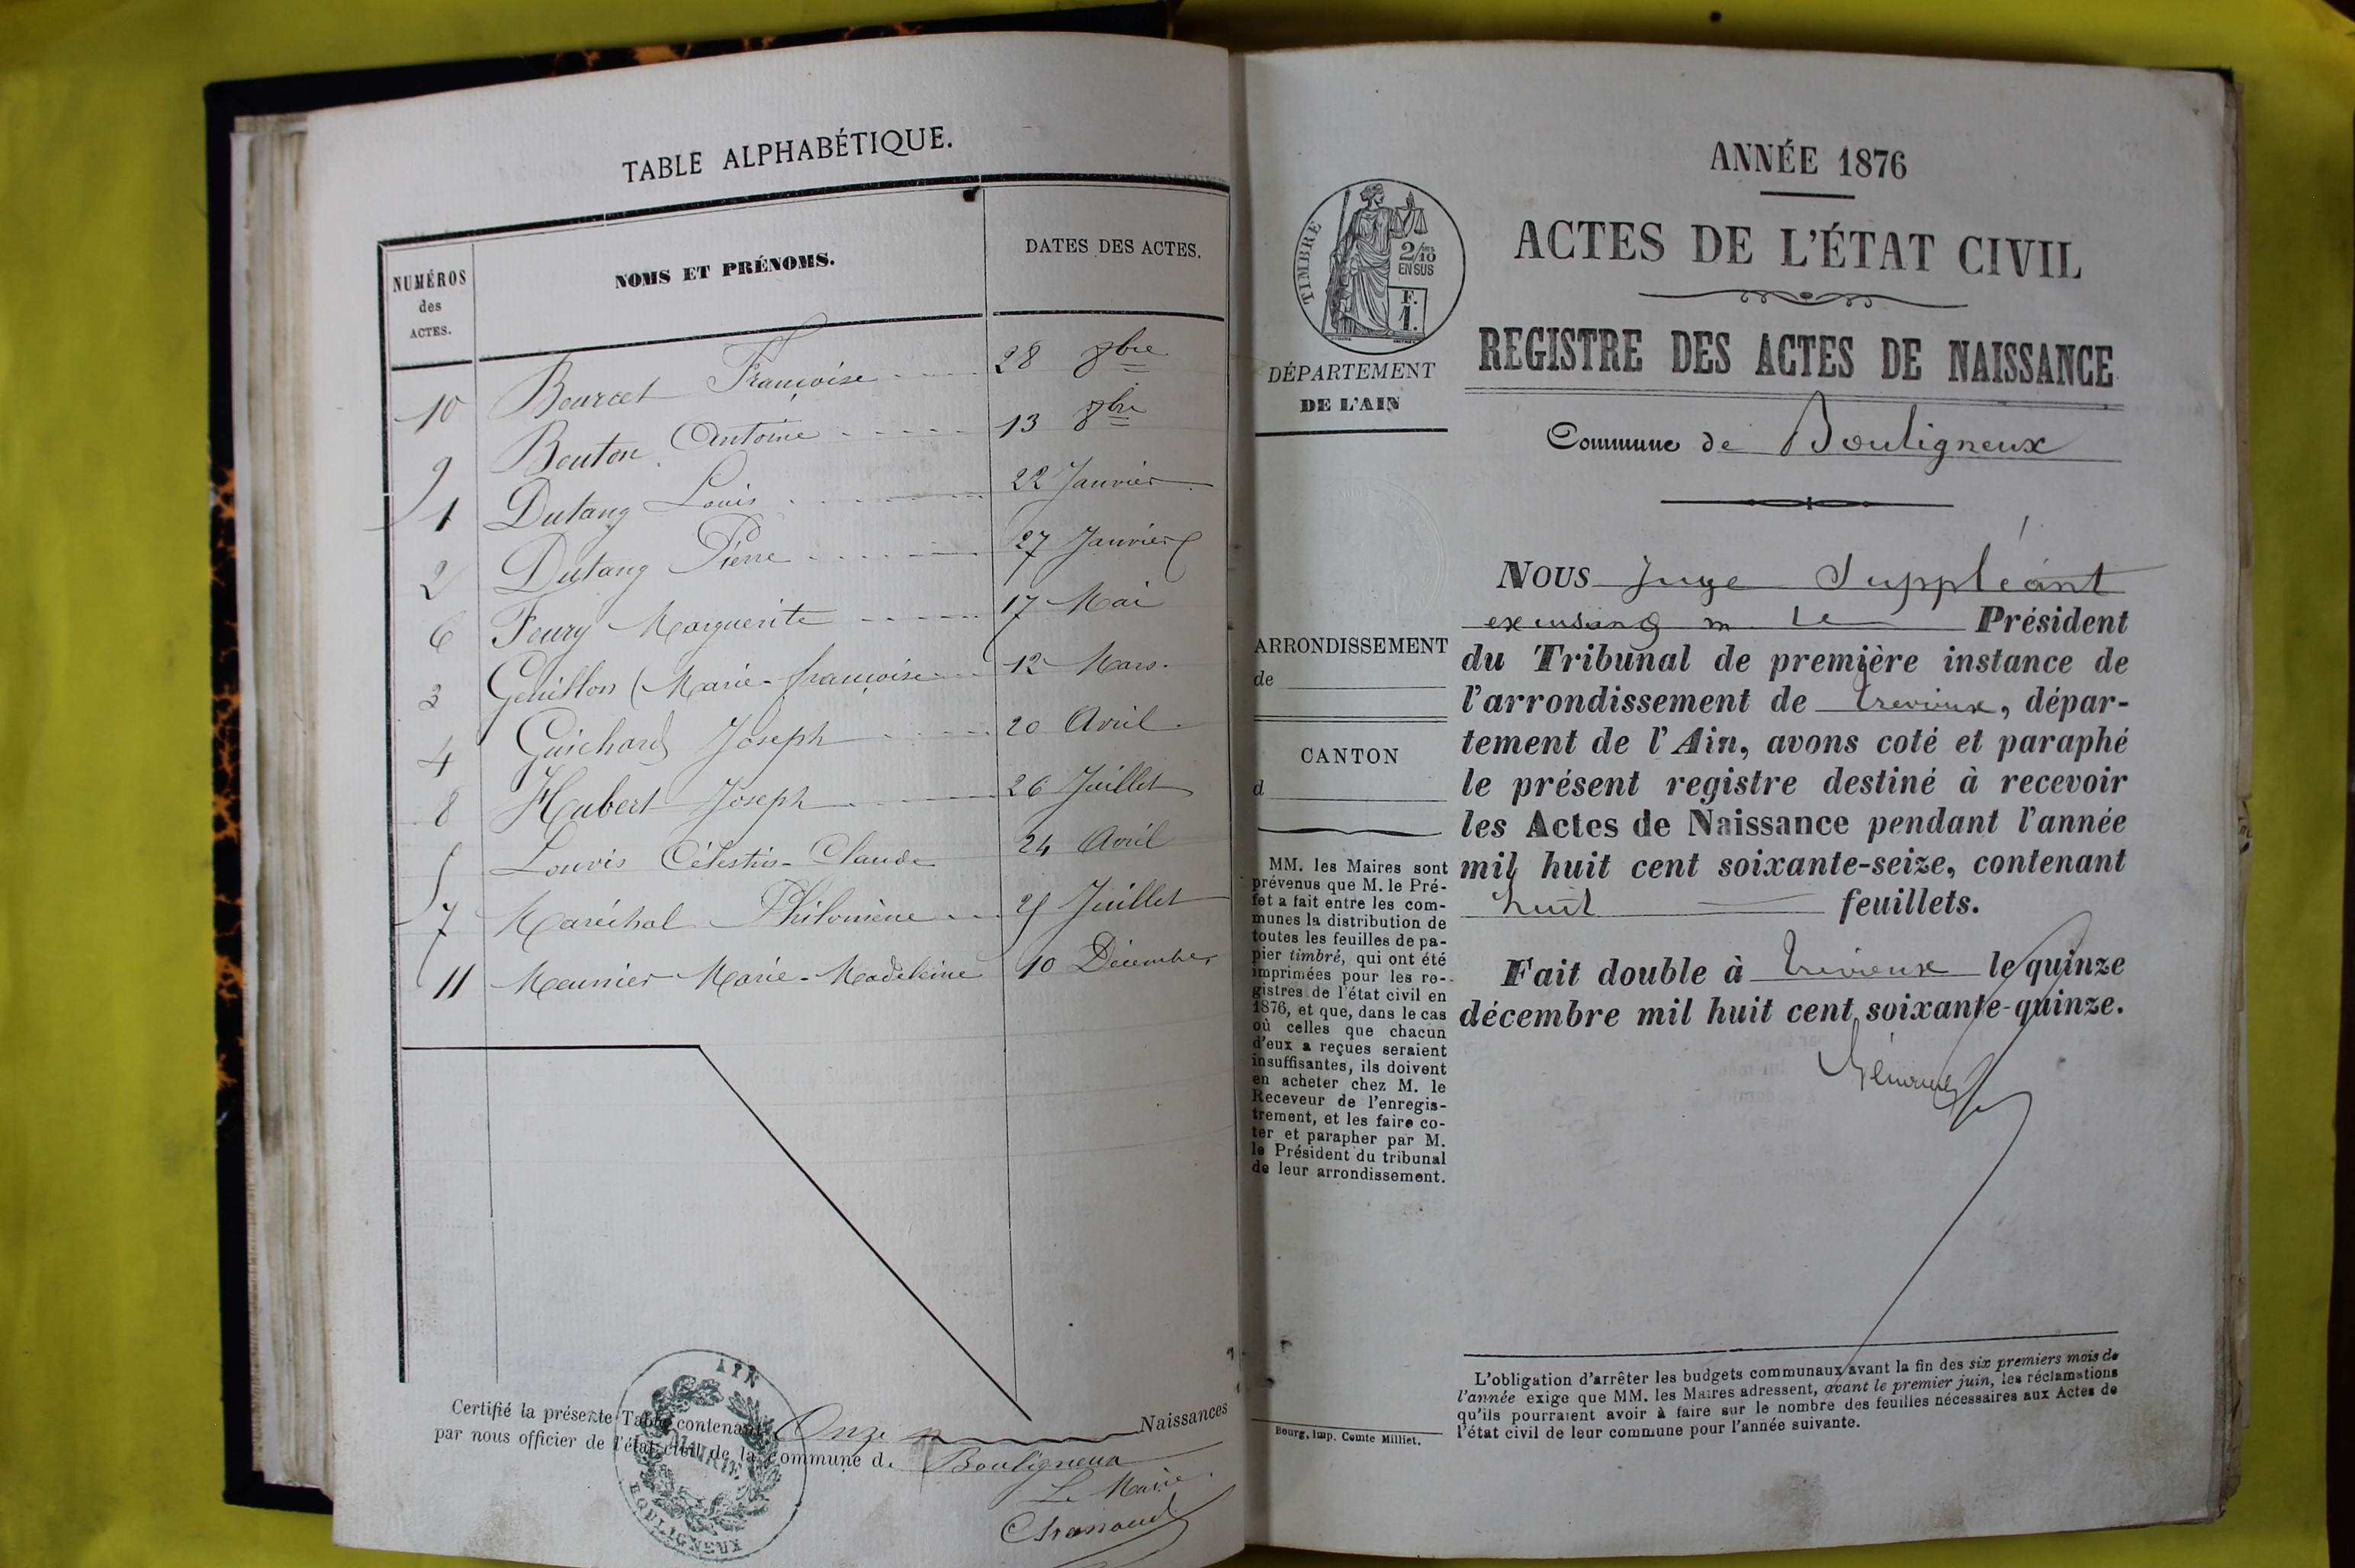 TABLE ALPHABÉTIQUE.
NUMÉROS
des
ACTES.
NOMS ET PRÉNOMS.
DATES DES ACTES.
10 Bourcet Françoise 28 8bre
9 Bouton Antoine 13 8bre
1 Dutang Louis 22 Janvier
2 Dutang Pierre 27 Janvier
6 Feury Marguerite 17 Mai
3 Genillon Marie-françoise 12 Mars.
4 Guichard Joseph 20 Avril
8 Hubert Joseph 26 Juillet
5 Louvis Célestin-Claude 24 Avril
7 Maréchal Philomène 25 Juillet
11 Meunier Marie-Madeleine 10 Décembre
Certifié la présente Table contenant Onze Naissances
par nous officier de l'état civil de la commune de Bouligneux
Le Maire
AIN
MAIRIE
BOULIGNEUX
ANNÉE 1876
ACTES DE L'ÉTAT CIVIL
REGISTRE DES ACTES DE NAISSANCE
Commune de Bouligneux
TIMBRE
2/10
EN SUS
F.
1.
DÉPARTEMENT
DE L'AIN
ARRONDISSEMENT
de
CANTON
d
MM. les Maires sont
prévenus que M. le Pré-
fet a fait entre les com-
munes la distribution de
toutes les feuilles de pa-
pier timbré, qui ont été
imprimées pour les re-
gistres de l'état civil en
1876, et que, dans le cas
où celles que chacun
d'eux a reçues seraient
insuffisantes, ils doivent
en acheter chez M. le
Receveur de l'enregis-
trement, et les faire co-
ter et parapher par M.
le Président du tribunal
de leur arrondissement.
Bourg, imp. Comte Milliet.
NOUS Juge Suppléant
m le Président
du Tribunal de première instance de
l'arrondissement de trevoux, dépar-
tement de l'Ain, avons coté et paraphé
le présent registre destiné à recevoir
les Actes de Naissance pendant l'année
mil huit cent soixante-seize, contenant
huit feuillets.
Fait double à trevoux le quinze
décembre mil huit cent soixante-quinze.
L'obligation d'arrêter les budgets communaux avant la fin des six premiers mois de
l'année exige que MM. les Maires adressent, avant le premier juin, les réclamations
qu'ils pourraient avoir à faire sur le nombre des feuilles nécessaires aux Actes de
l'état civil de leur commune pour l'année suivante.